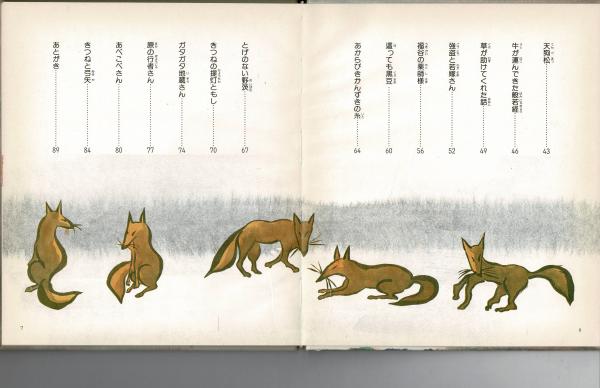 天狗松……43
牛が運んできた般若経……46
草が助けてくれた話……49
強盗と若嫁さん……52
福谷の薬師様……56
這っても黒豆……60
あからびきかんずきの糸……64
とげのない野茨……67
きつねの提灯ともし……70
ガタガタ地蔵さん……74
原の行者さん……77
あべこべさん……80
きつねと弓矢……84
あとがき……89
6
7